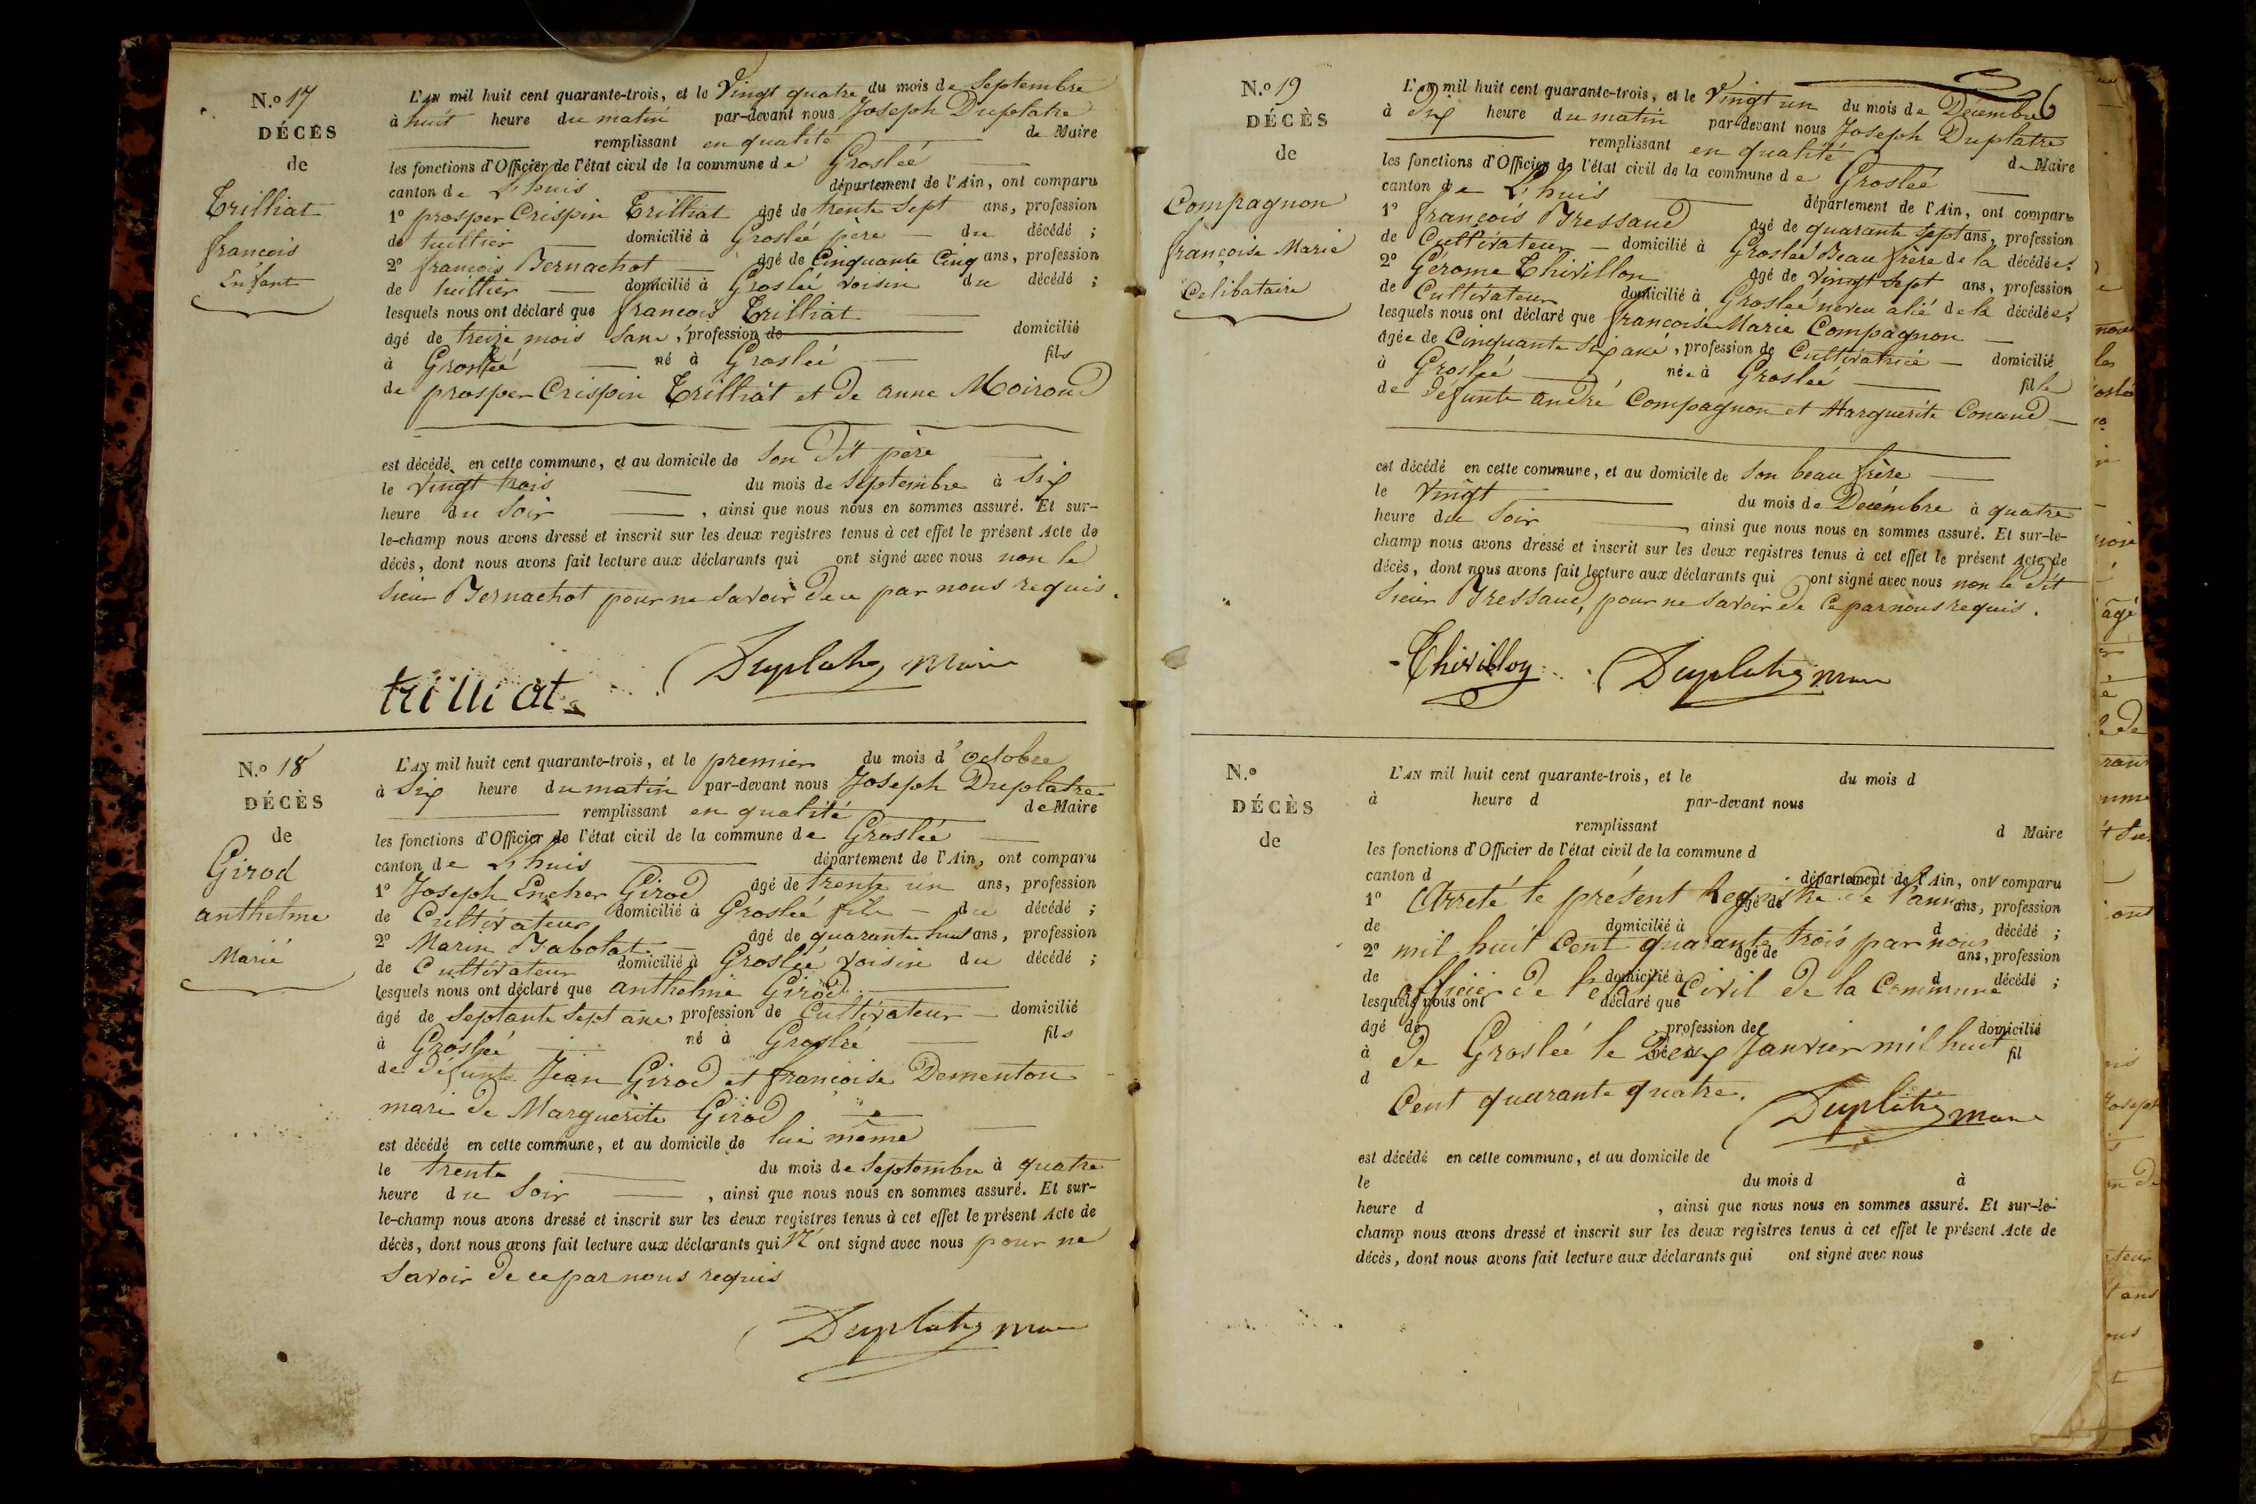 N.o 17
DÉCÈS
de
Trilliat
françois
Enfant
L'AN mil huit cent quarante-trois, et le Vingt quatre du mois de Septembre
à huit heure du matin par-devant nous Joseph Duplatre
remplissant en qualité de Maire
les fonctions d'Officier de l'état civil de la commune de Groslée
canton de L'huis département de l'Ain, ont comparu
1o prosper Crispin Trilliat âgé de trente Sept ans, profession
de tuillier domicilié à Groslée père du décédé ;
2o françois Bernachot âgé de Cinquante Cinq ans, profession
de tuillier domicilié à Groslée voisin du décédé ;
lesquels nous ont déclaré que françois Trilliat
âgé de treize mois sans, profession de domicilié
à Groslée né à Groslée fils
de prosper Crispin Trilliat et de anne Moiroud
est décédé en cette commune, et au domicile de Son dit père
le Vingt trois du mois de Septembre à Six
heure du Soir, ainsi que nous nous en sommes assuré. Et sur-
le-champ nous avons dressé et inscrit sur les deux registres tenus à cet effet le présent Acte de
décès, dont nous avons fait lecture aux déclarants qui ont signé avec nous non le
Sieur Bernachot pour ne Savoir de ce par nous requis.
trilliat Duplatre maire
N.o 18
DÉCÈS
de
Girod
anthelme
Marié
L'AN mil huit cent quarante-trois, et le premier du mois d'octobre
à Six heure du matin par-devant nous Joseph Duplatre
remplissant en qualité de Maire
les fonctions d'Officier de l'état civil de la commune de Groslée
canton de L'huis département de l'Ain, ont comparu
1o Joseph Encher Girod âgé de trente un ans, profession
de Cultivateur domicilié à Groslée fils du décédé ;
2o Marin Babolat âgé de quarante huit ans, profession
de Cultivateur domicilié à Groslée voisin du décédé ;
lesquels nous ont déclaré que anthelme Girod
âgé de Septante Sept ans, profession de Cultivateur domicilié
à Groslée né à Groslée fils
de défunts Jean Girod et françoise Dementon
mari de Marguerite Girod
est décédé en cette commune, et au domicile de lui même
le trente du mois de Septembre à quatre
heure du Soir, ainsi que nous nous en sommes assuré. Et sur-
le-champ nous avons dressé et inscrit sur les deux registres tenus à cet effet le présent Acte de
décès, dont nous avons fait lecture aux déclarants qui N'ont signé avec nous pour ne
Savoir de ce par nous requis
Duplatre maire
6
N.o 19
DÉCÈS
de
Compagnon
françoise Marie
Celibataire
L'AN mil huit cent quarante-trois, et le Vingt un du mois de Decembre
à Six heure du matin par-devant nous Joseph Duplatre
remplissant en qualité de Maire
les fonctions d'Officier de l'état civil de la commune de Groslée
canton de L'huis département de l'Ain, ont comparu
1o françois Bressaud âgé de quarante Sept ans, profession
de Cultivateur domicilié à Groslée Beau frère de la décédée ;
2o Gérome Thivillon âgé de Vingt Sept ans, profession
de Cultivateur domicilié à Groslée neveu alié de la décédée ;
lesquels nous ont déclaré que françoise Marie Compagnon
âgée de Cinquante Six ans, profession de Cultivatrice domicilié
à Groslée née à Groslée fille
de défunts andré Compagnon et Marguerite Conand
est décédé en cette commune, et au domicile de Son beau frère
le Vingt du mois de Decémbre à quatre
heure du Soir ainsi que nous nous en sommes assuré. Et sur-le-
champ nous avons dressé et inscrit sur les deux registres tenus à cet effet le présent Acte de
décès, dont nous avons fait lecture aux déclarants qui ont signé avec nous non le dit
Sieur Bressaud, pour ne Savoir de Ce par nous requis.
Thivilloy Duplatre maire
N.o
DÉCÈS
de
L'AN mil huit cent quarante-trois, et le du mois d
à heure d par-devant nous
remplissant d Maire
les fonctions d'Officier de l'état civil de la commune d
canton d département de l'Ain, ont comparu
1o âgé de ans, profession
Arreté le présent Registre de l'année
de domicilié à d décédé ;
2o âgé de ans, profession
mil huit Cent quarante trois par nous
de domicilié à d décédé ;
officier de l'etat Civil de la Commune
lesquels nous ont déclaré que
âgé de profession de domicilié
à né à fil
de Groslée le Deux Janvier mil huit
d
Cent quarante quatre.
Duplatre maire
est décédé en cette commune, et au domicile de
le du mois d à
heure d, ainsi que nous nous en sommes assuré. Et sur-le-
champ nous avons dressé et inscrit sur les deux registres tenus à cet effet le présent Acte de
décès, dont nous avons fait lecture aux déclarants qui ont signé avec nous